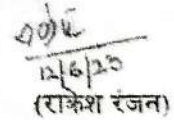 12/6/23
(राकेश रंजन)